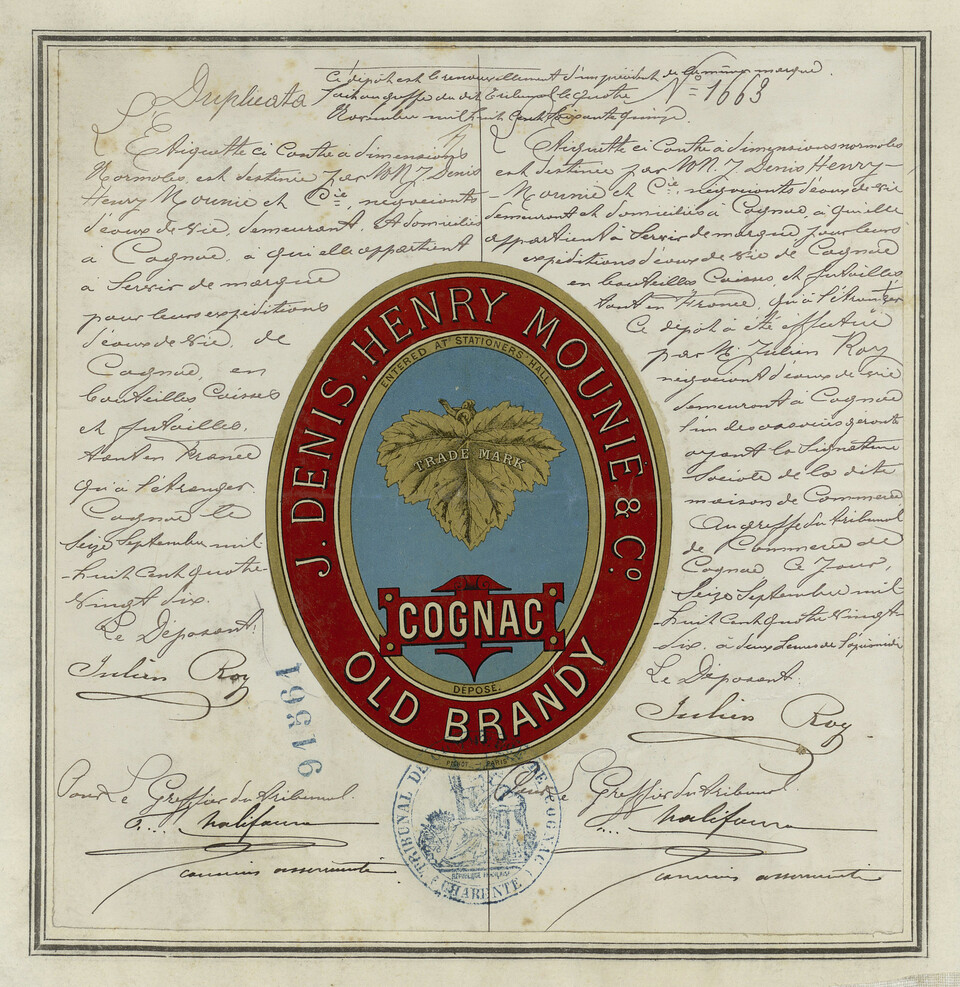 Duplicata
Ce dépôt est le renouvellement d'un précédent de la même marque.
fait au greffe du dit Tribunal le quatre
Novembre mil huit cent soixante quinze.
N° 1663
L'Etiquette ci contre a dimensions
Normales, est destinée par MM. J. Denis
Henry Mounié et Cie, négociants
d'eaux de vie, demeurant et domiciliés
à Cognac, à qui elle appartient
à Servir de marque
pour leurs expéditions
d'eaux de vie, de
Cognac, en
bouteilles Caisses
et futailles,
tant en France
qu'à l'étranger.
Cognac le
Seize Septembre mil
huit cent quatre-
vingt dix.
Le Déposant:
Julien Roy
L'Etiquette ci Contre a dimensions normales
est destinée par MM. J. Denis Henry-
Mounié et Cie, négociants d'eaux de vie
demeurant et domiciliés à Cognac, à qui elle
appartient à Servir de marque pour leurs
expéditions d'eaux de vie de Cognac
en bouteilles Caisses et futailles
tant en France, qu'à l'étranger
Ce dépôt a été effectué
par M. Julien Roy
négociant d'eaux de vie
demeurant à Cognac
l'un des associés gérants
ayant la Signature
Sociale de la dite
maison de Commerce
Au greffe du tribunal
de Commerce de
Cognac Ce Jour,
Seize Septembre mil
huit cent quatre vingt
dix, à deux heures de
Le Déposant:
Julien Roy
J. DENIS, HENRY MOUNIÉ & Co.
ENTERED AT STATIONERS' HALL
TRADE MARK
COGNAC
DÉPOSÉ.
OLD BRANDY
PARIS
91561
Pour Le Greffier du tribunal
commis assermenté
Pour Le Greffier du tribunal
commis assermenté
TRIBUNAL DE COGNAC
RÉPUBLIQUE FRANÇAISE
(CHARENTE)